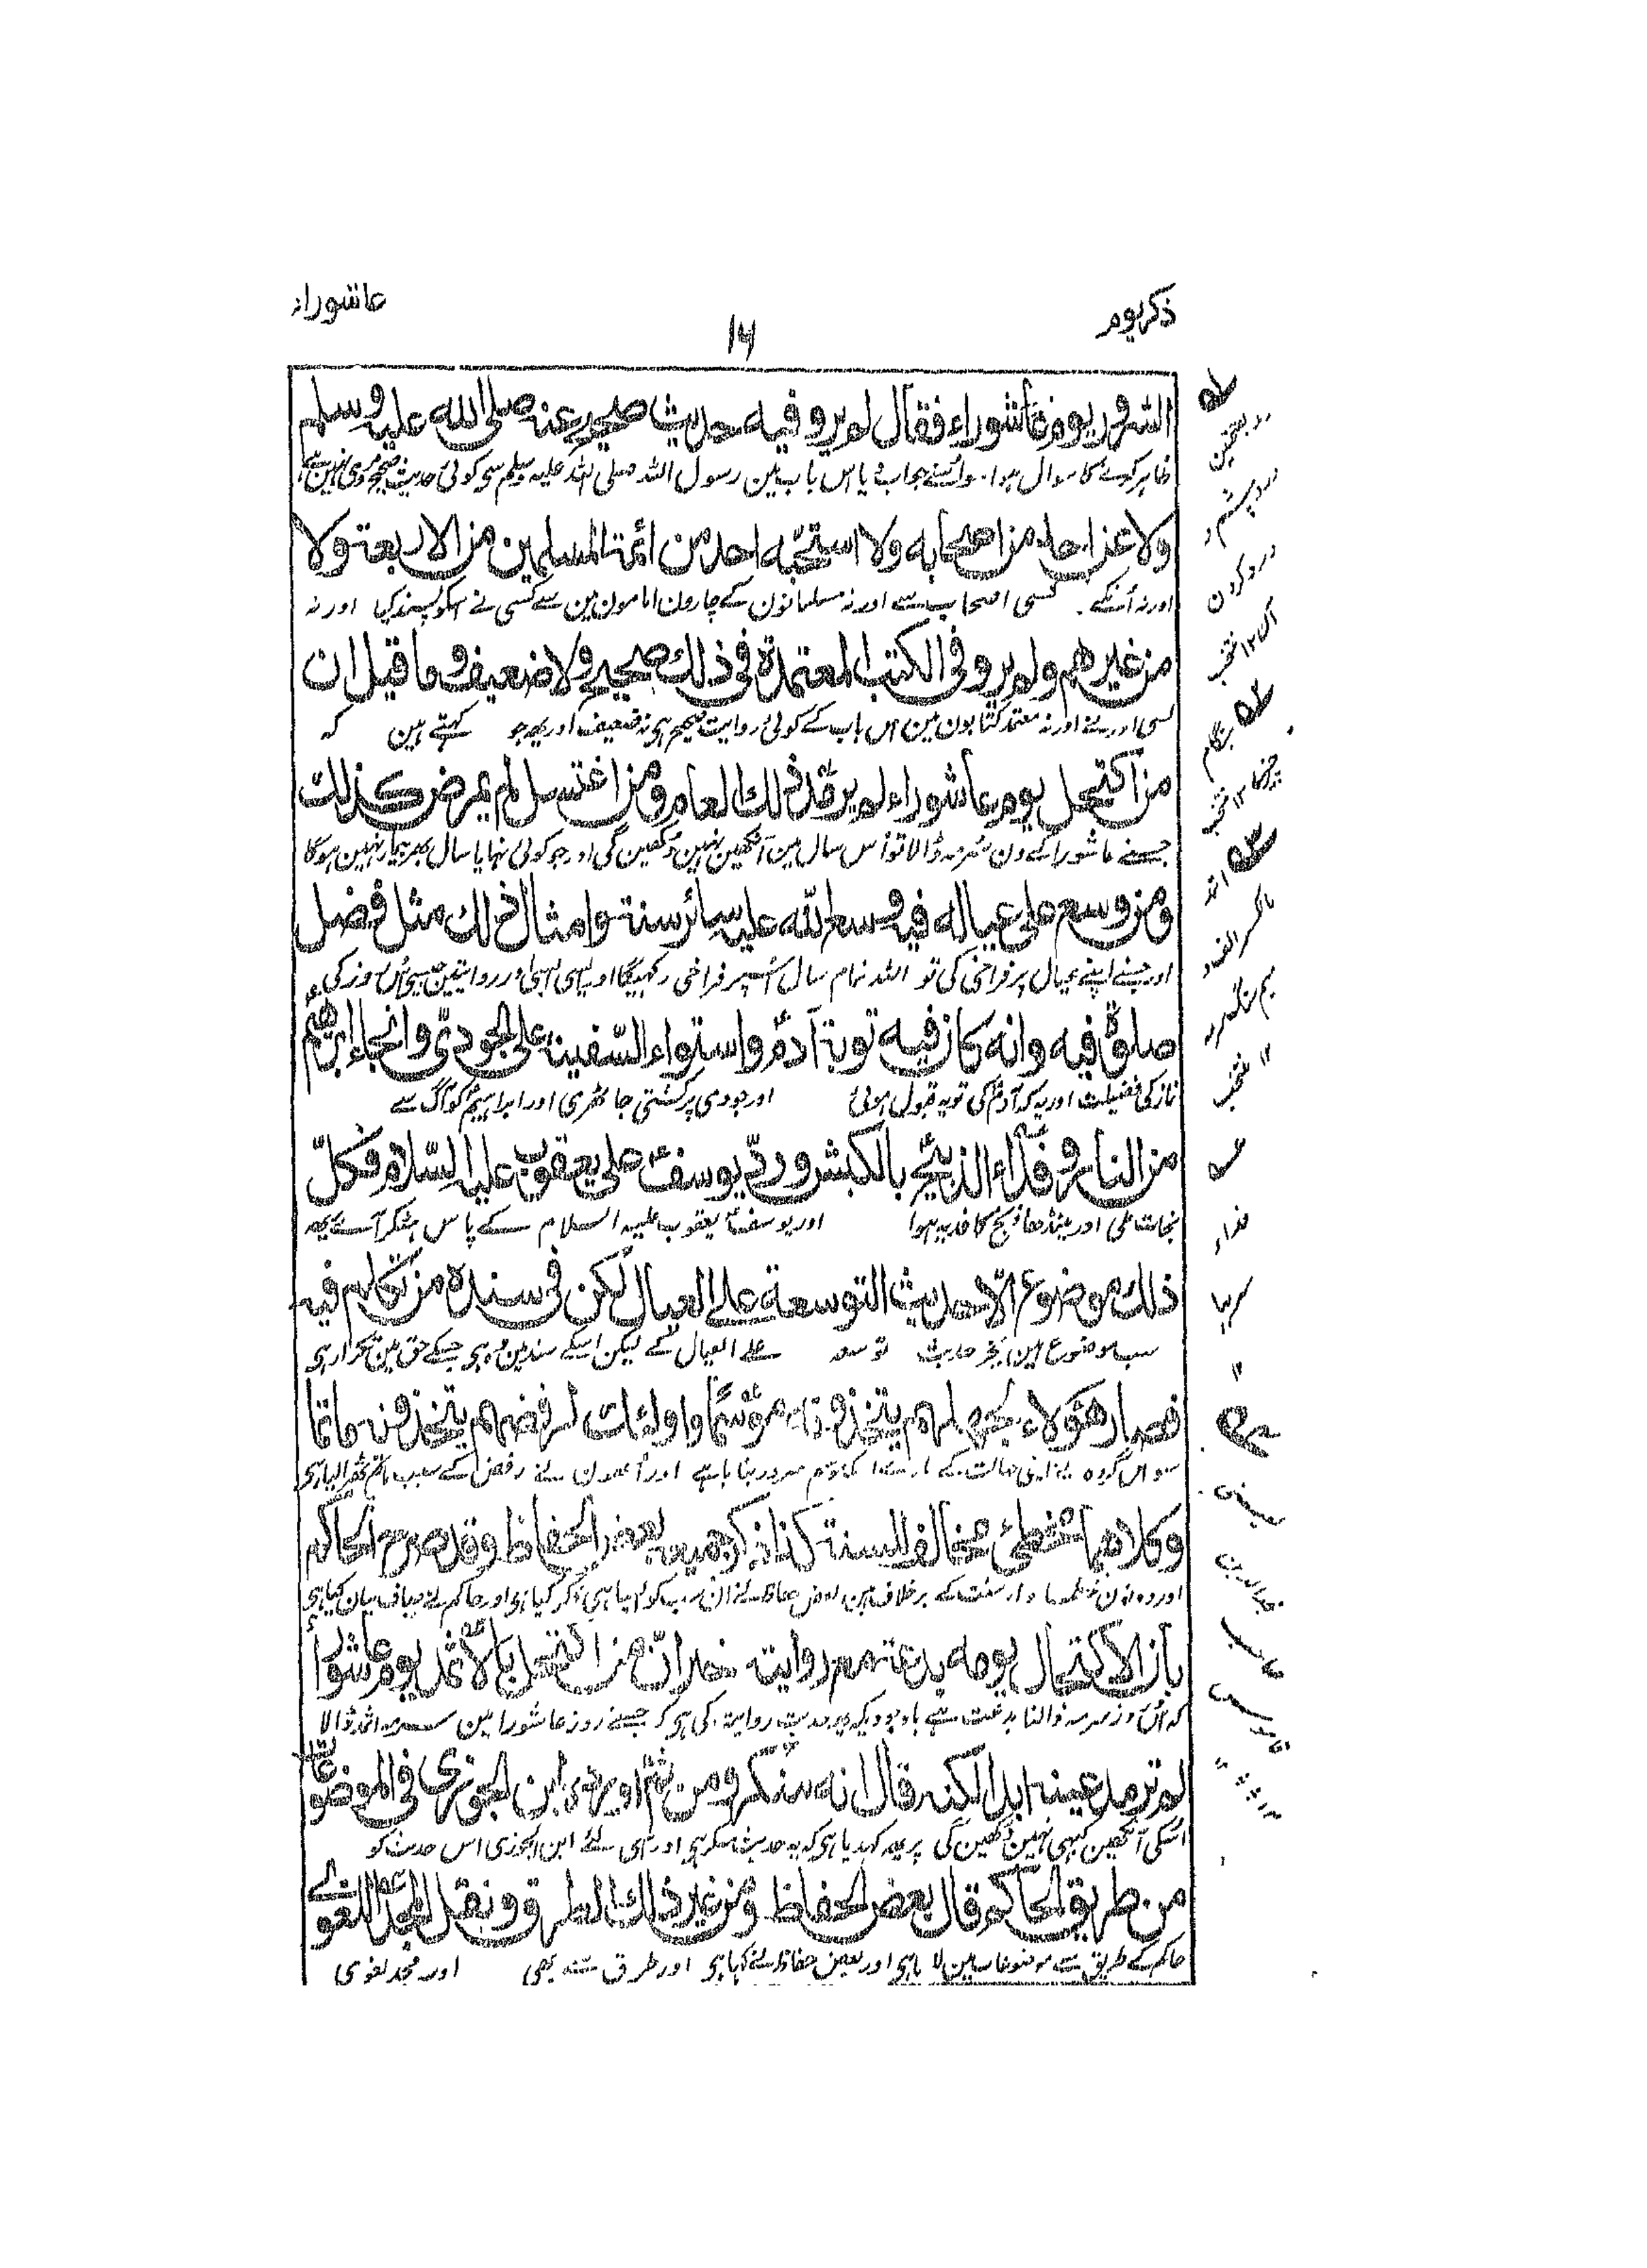 ذکر یوم
۱۶
عاشوراء
السرور یوم عاشوراء فقال لم یرو فیه حدیث صحیح عنه صلی الله علیه وسلم
ظاہر کرنے کا سوال ہوا سو اسنے جواب دیا اس باب مین رسول اللہ صلی اللہ علیہ وسلم سی کوئی حدیث صحیح مروی نہین ہے
ولا عن احد من اصحابه ولا استحبه احد من ائمة المسلمین من الاربعة ولا
اور نہ اُنکے کسی اصحاب سے اور نہ مسلمانون کے چارون امامون مین سے کسی نے اسکو پسند کیا اور نہ
من غیرهم ولم یرو فی الکتب المعتمدة فی ذلك صحیح ولا ضعیف وما قیل ان
کسی اور نے اور نہ معتمد کتابون مین اس باب کے کوئی روایت صحیح ہی نہ ضعیف اور یہہ جو کہتے ہین کہ
من اکتحل یوم عاشوراء لم یرمد ذلك العام ومن اغتسل لم یمرض کذلك
جسنے عاشورا کے دن سُرمہ ڈالا تو اُس سال مین آنکھین نہین دُکھین گی اور جو کوئی نہایا سال بھر بیمار نہین ہوگا
ومن وسع علی عیاله فیه وسع الله علیه سائر سنته وامثال ذلك مثل فضل
اور جسنے اپنے عیال پر فراخی کی تو اللہ تمام سال اُسپر فراخی رکھیگا اور ایسی ایسی اور روایتین جیسی اُس روز کی
صلوة فیه وانه کان فیه توبة آدم واستواء السفینة علی الجودی وانجاء ابرهیم
نماز کی فضیلت اور یہ کہ آدم کی توبہ قبول ہوئی اور جودی پر کشتی جا ٹھری اور ابراہیم کو آگ سے
من النار وفداء الذبیح بالکبش ورد یوسف علی یعقوب علیه السلام فکل
نجات ملی اور مینڈھا ذبیح کا فدیہ ہوا اور یوسف یعقوب علیہ السلام کے پاس ہٹکر آئے یہہ
ذلك موضوع الا حدیث التوسعة علی العیال لکن فی سنده من تکلم فیه
سب موضوع ہین بجز حدیث توسعہ علے العیال کے لیکن اسکے سند مین وہ ہی جسکے حق مین تکرار ہی
فصار هؤلاء لجهلهم یتخذونه موسما واولئك لرفضهم یتخذونه ماتما
سو اس گروہ نے اپنی جہالت کے مارے اسکو موسم سرور بنایا ہے اور اُنھون نے رفض کے سبب ماتم ٹھہرالیا ہی
وکلاهما مخطئ مخالف للسنة کذا ذکر جمیعه بعض الحفاظ وقد صرح الحاکم
اور دونون خطاوار سنت کے برخلاف ہین بعض حفاظ نے ان سب کو ایسا ہی ذکر کیا ہی اور حاکم نے صاف بیان کیا ہی
بان الاکتحال یومه بدعة مع روایته خبر ان من اکتحل بالاثمد یوم عاشوراء
کہ اُس روز سرمہ ڈالنا بدعت ہے باوجودیکہ یہ حدیث روایت کی ہی کہ جسنے روز عاشورا مین سرمہ اثمد ڈالا
لم ترمد عینه ابدا لکنه قال انه منکر ومن ثم اورده ابن الجوزی فی الموضوعات
اُسکی آنکھین کبہی نہین دُکھین گی پر یہہ کہدیا ہی کہ یہ حدیث منکر ہی اور اسی لئے ابن الجوزی اس حدیث کو
من طریق الحاکم قال بعض الحفاظ ومن غیر ذلك الطرق ونقل المجد اللغوی
حاکم کے طریق سے موضوعات مین لایا ہی اور بعض حفاظ نے کہا ہی اور طرق سے بھی اور مجد لغوی
درد چشم و
درد کردن
منتخب
بنگام
منتخب
اثمد
بالکسر الف و
میم
منتخب
فداء
سربہا
۱۲
یعنی
مجد الدین
صاحب
قاموس